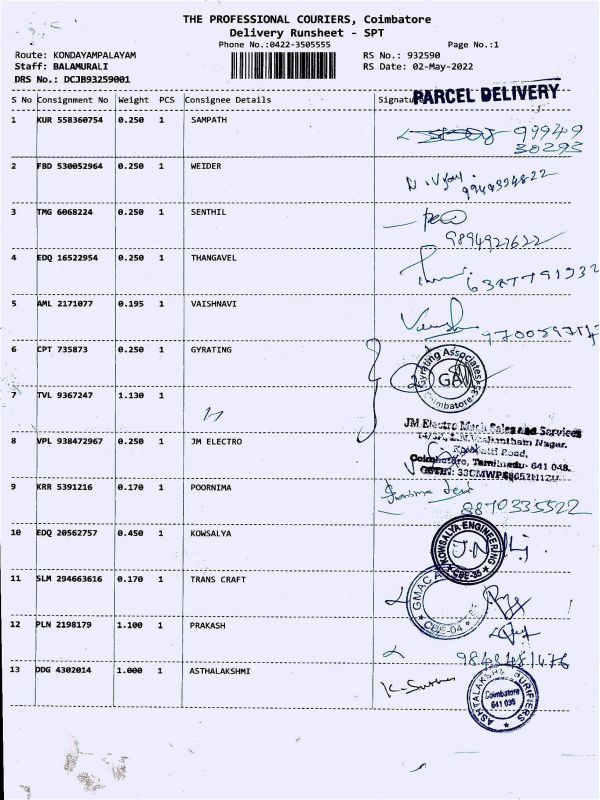 THE PROFESSIONAL COURIERS, Coimbatore
Delivery Runsheet - SPT
Phone No.:0422-3505555 Page No.:1
Route: KONDAYAMPALAYAM RS No.: 932590
Staff: BALAMURALI RS Date: 02-May-2022
DRS No.: DCJB93259001
PARCEL DELIVERY
S No Consignment No Weight PCS Consignee Details Signature
1 KUR 558360754 0.250 1 SAMPATH 99949
30293
2 FBD 530052964 0.250 1 WEIDER
3 TMG 6068224 0.250 1 SENTHIL
9894927622
4 EDQ 16522954 0.250 1 THANGAVEL
5 AML 2171077 0.195 1 VAISHNAVI
6 CPT 735873 0.250 1 GYRATING
Gyrating Associates
Coimbatore-35
7 TVL 9367247 1.130 1 "
JM Electro Mech Sales and Services
8 VPL 938472967 0.250 1 JM ELECTRO
Coimbatore, Tamilnadu- 641 048.
9 KRR 5391216 0.170 1 POORNIMA
8870335522
10 EDQ 20562757 0.450 1 KOWSALYA
KOWSALYA ENGINEERING
CBE-35
11 SLM 294663616 0.170 1 TRANS CRAFT
GMAC
CBE-04
12 PLN 2198179 1.100 1 PRAKASH
13 DDG 4302014 1.000 1 ASTHALAKSHMI
ASHTALAKSHMI PURIFIERS
Coimbatore
641 035